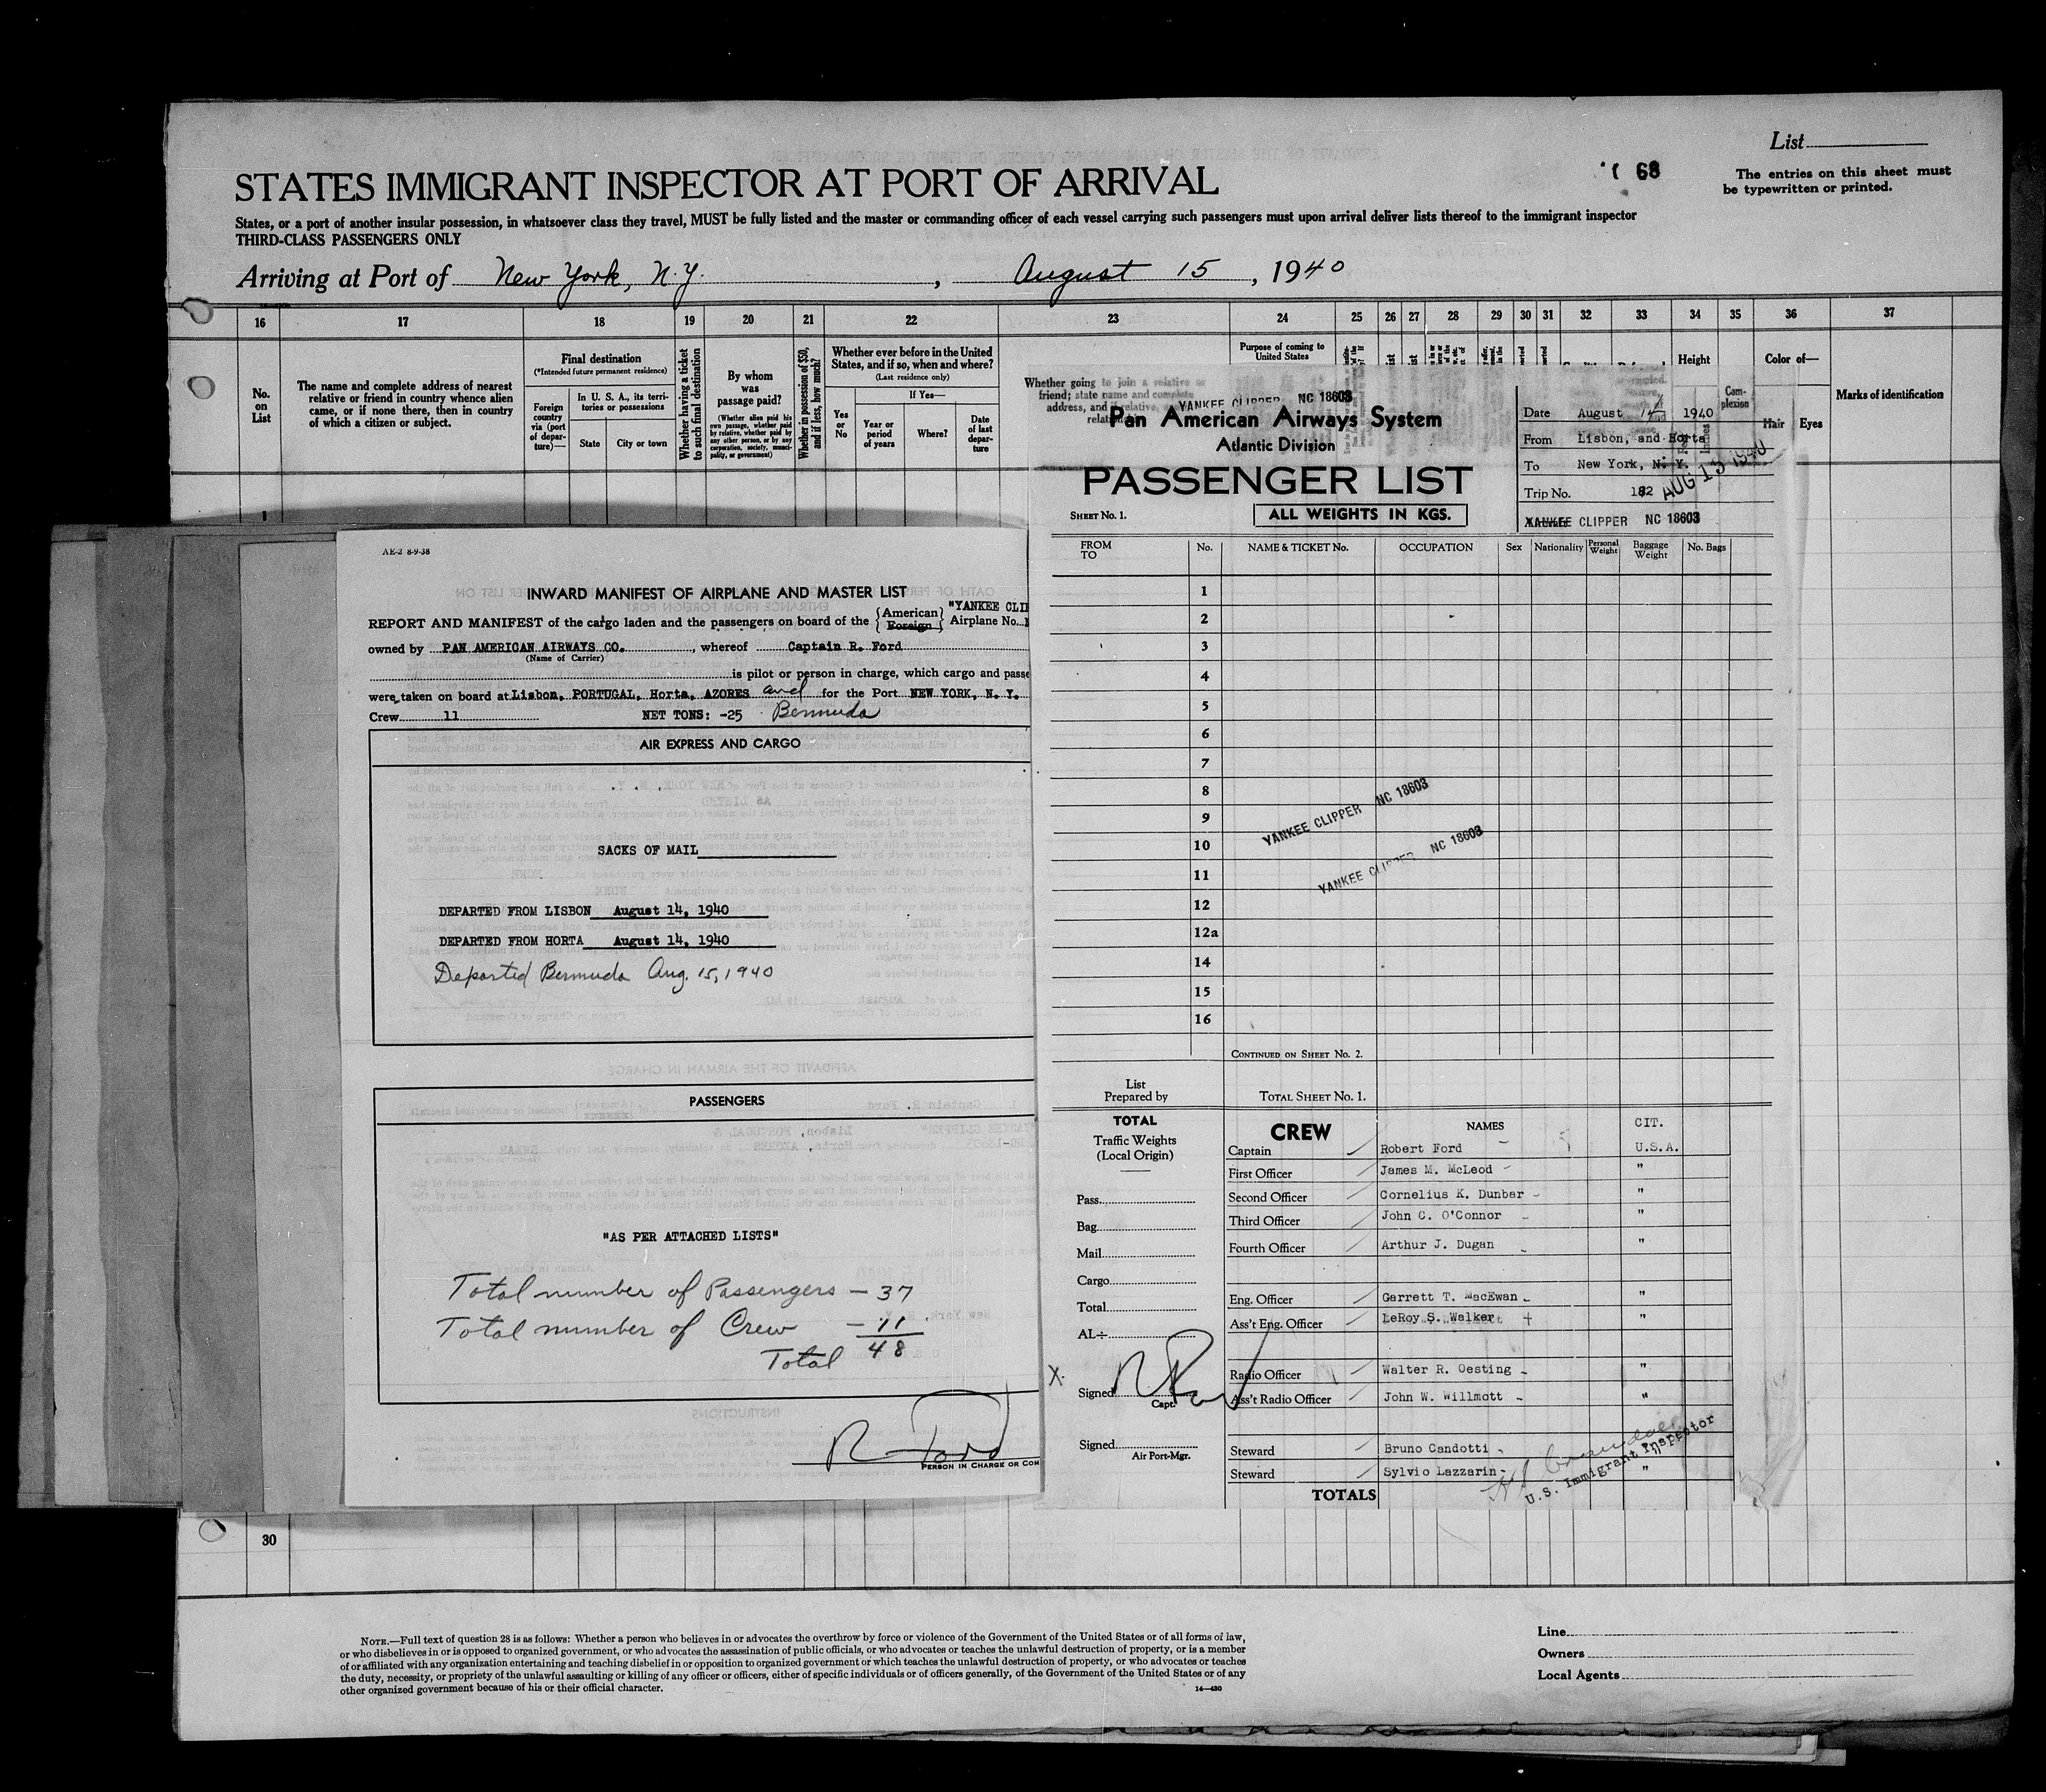 List
68
The entries on this sheet must
be typewritten or printed.
STATES IMMIGRANT INSPECTOR AT PORT OF ARRIVAL
States, or a port of another insular possession, in whatsoever class they travel, MUST be fully listed and the master or commanding officer of each vessel carrying such passengers must upon arrival deliver lists thereof to the immigrant inspector
THIRD-CLASS PASSENGERS ONLY
Arriving at Port of New York, N.Y., August 15, 1940
16 17 18 19 20 21 22 23 24 25 26 27 28 29 30 31 32 33 34 35 36 37
No. on List
The name and complete address of nearest
relative or friend in country whence alien
came, or if none there, then in country
of which a citizen or subject.
Final destination
(*Intended future permanent residence)
Foreign country via (port of departure)—
In U. S. A., its territories or possessions
State
City or town
Whether having a ticket to such final destination
By whom was passage paid?
(Whether alien paid his own passage, whether paid by relative, whether paid by any other person, or by any corporation, society, municipality, or government)
Whether in possession of $50, and if less, how much?
Whether ever before in the United
States, and if so, when and where?
(Last residence only)
If Yes—
Yes or No
Year or period of years
Where?
Date of last departure
Whether going to join a relative or
friend; state name and complete
address, and if relative,
Purpose of coming to
United States
Height
Complexion
Color of—
Hair Eyes
Marks of identification
1
AE-2 8-9-38
INWARD MANIFEST OF AIRPLANE AND MASTER LIST
REPORT AND MANIFEST of the cargo laden and the passengers on board of the American Foreign "YANKEE CLI
Airplane No.
owned by PAN AMERICAN AIRWAYS CO., whereof Captain R. Ford
(Name of Carrier)
is pilot or person in charge, which cargo and passe
were taken on board at Lisbon, PORTUGAL, Horta, AZORES and for the Port NEW YORK, N. Y.
Crew 11 NET TONS: -25 Bermuda
AIR EXPRESS AND CARGO
SACKS OF MAIL
DEPARTED FROM LISBON August 14, 1940
DEPARTED FROM HORTA August 14, 1940
Departed Bermuda Aug. 15, 1940
PASSENGERS
"AS PER ATTACHED LISTS"
Total number of Passengers — 37
Total number of Crew — 11
Total 48
R Ford
PERSON IN CHARGE OR COM
YANKEE CLIPPER NC 18603
Pan American Airways System
Atlantic Division
PASSENGER LIST
SHEET No. 1.
ALL WEIGHTS IN KGS.
Date August 14 1940
From Lisbon, and Horta
To New York, N. Y.
AUG 13 1940
Trip No. 182
Aircraft YANKEE CLIPPER NC 18603
FROM
TO
No. NAME & TICKET No. OCCUPATION Sex Nationality Personal Weight Baggage Weight No. Bags
1
2
3
4
5
6
7
8
9
10
11
12
12a
14
15
16
YANKEE CLIPPER NC 18603
YANKEE CLIPPER NC 18603
CONTINUED ON SHEET No. 2.
List
Prepared by
TOTAL SHEET No. 1.
TOTAL
Traffic Weights
(Local Origin)
Pass.
Bag.
Mail
Cargo
Total
AL÷
X
Signed R Ford
Capt.
Signed
Air Port-Mgr.
CREW NAMES CIT.
Captain Robert Ford U.S.A.
First Officer James M. McLeod "
Second Officer Cornelius K. Dunbar "
Third Officer John C. O'Connor "
Fourth Officer Arthur J. Dugan "
Eng. Officer Garrett T. MacEwan "
Ass't Eng. Officer LeRoy S. Walker "
Radio Officer Walter R. Oesting "
Ass't Radio Officer John W. Willmott "
Steward Bruno Candotti "
Steward Sylvio Lazzarin "
TOTALS
U.S. Immigrant Inspector
30
NOTE.—Full text of question 28 is as follows: Whether a person who believes in or advocates the overthrow by force or violence of the Government of the United States or of all forms of law,
or who disbelieves in or is opposed to organized government, or who advocates the assassination of public officials, or who advocates or teaches the unlawful destruction of property, or is a member
of or affiliated with any organization entertaining and teaching disbelief in or opposition to organized government or which teaches the unlawful destruction of property, or who advocates or teaches
the duty, necessity, or propriety of the unlawful assaulting or killing of any officer or officers, either of specific individuals or of officers generally, of the Government of the United States or of any
other organized government because of his or their official character.
14—430
Line
Owners
Local Agents